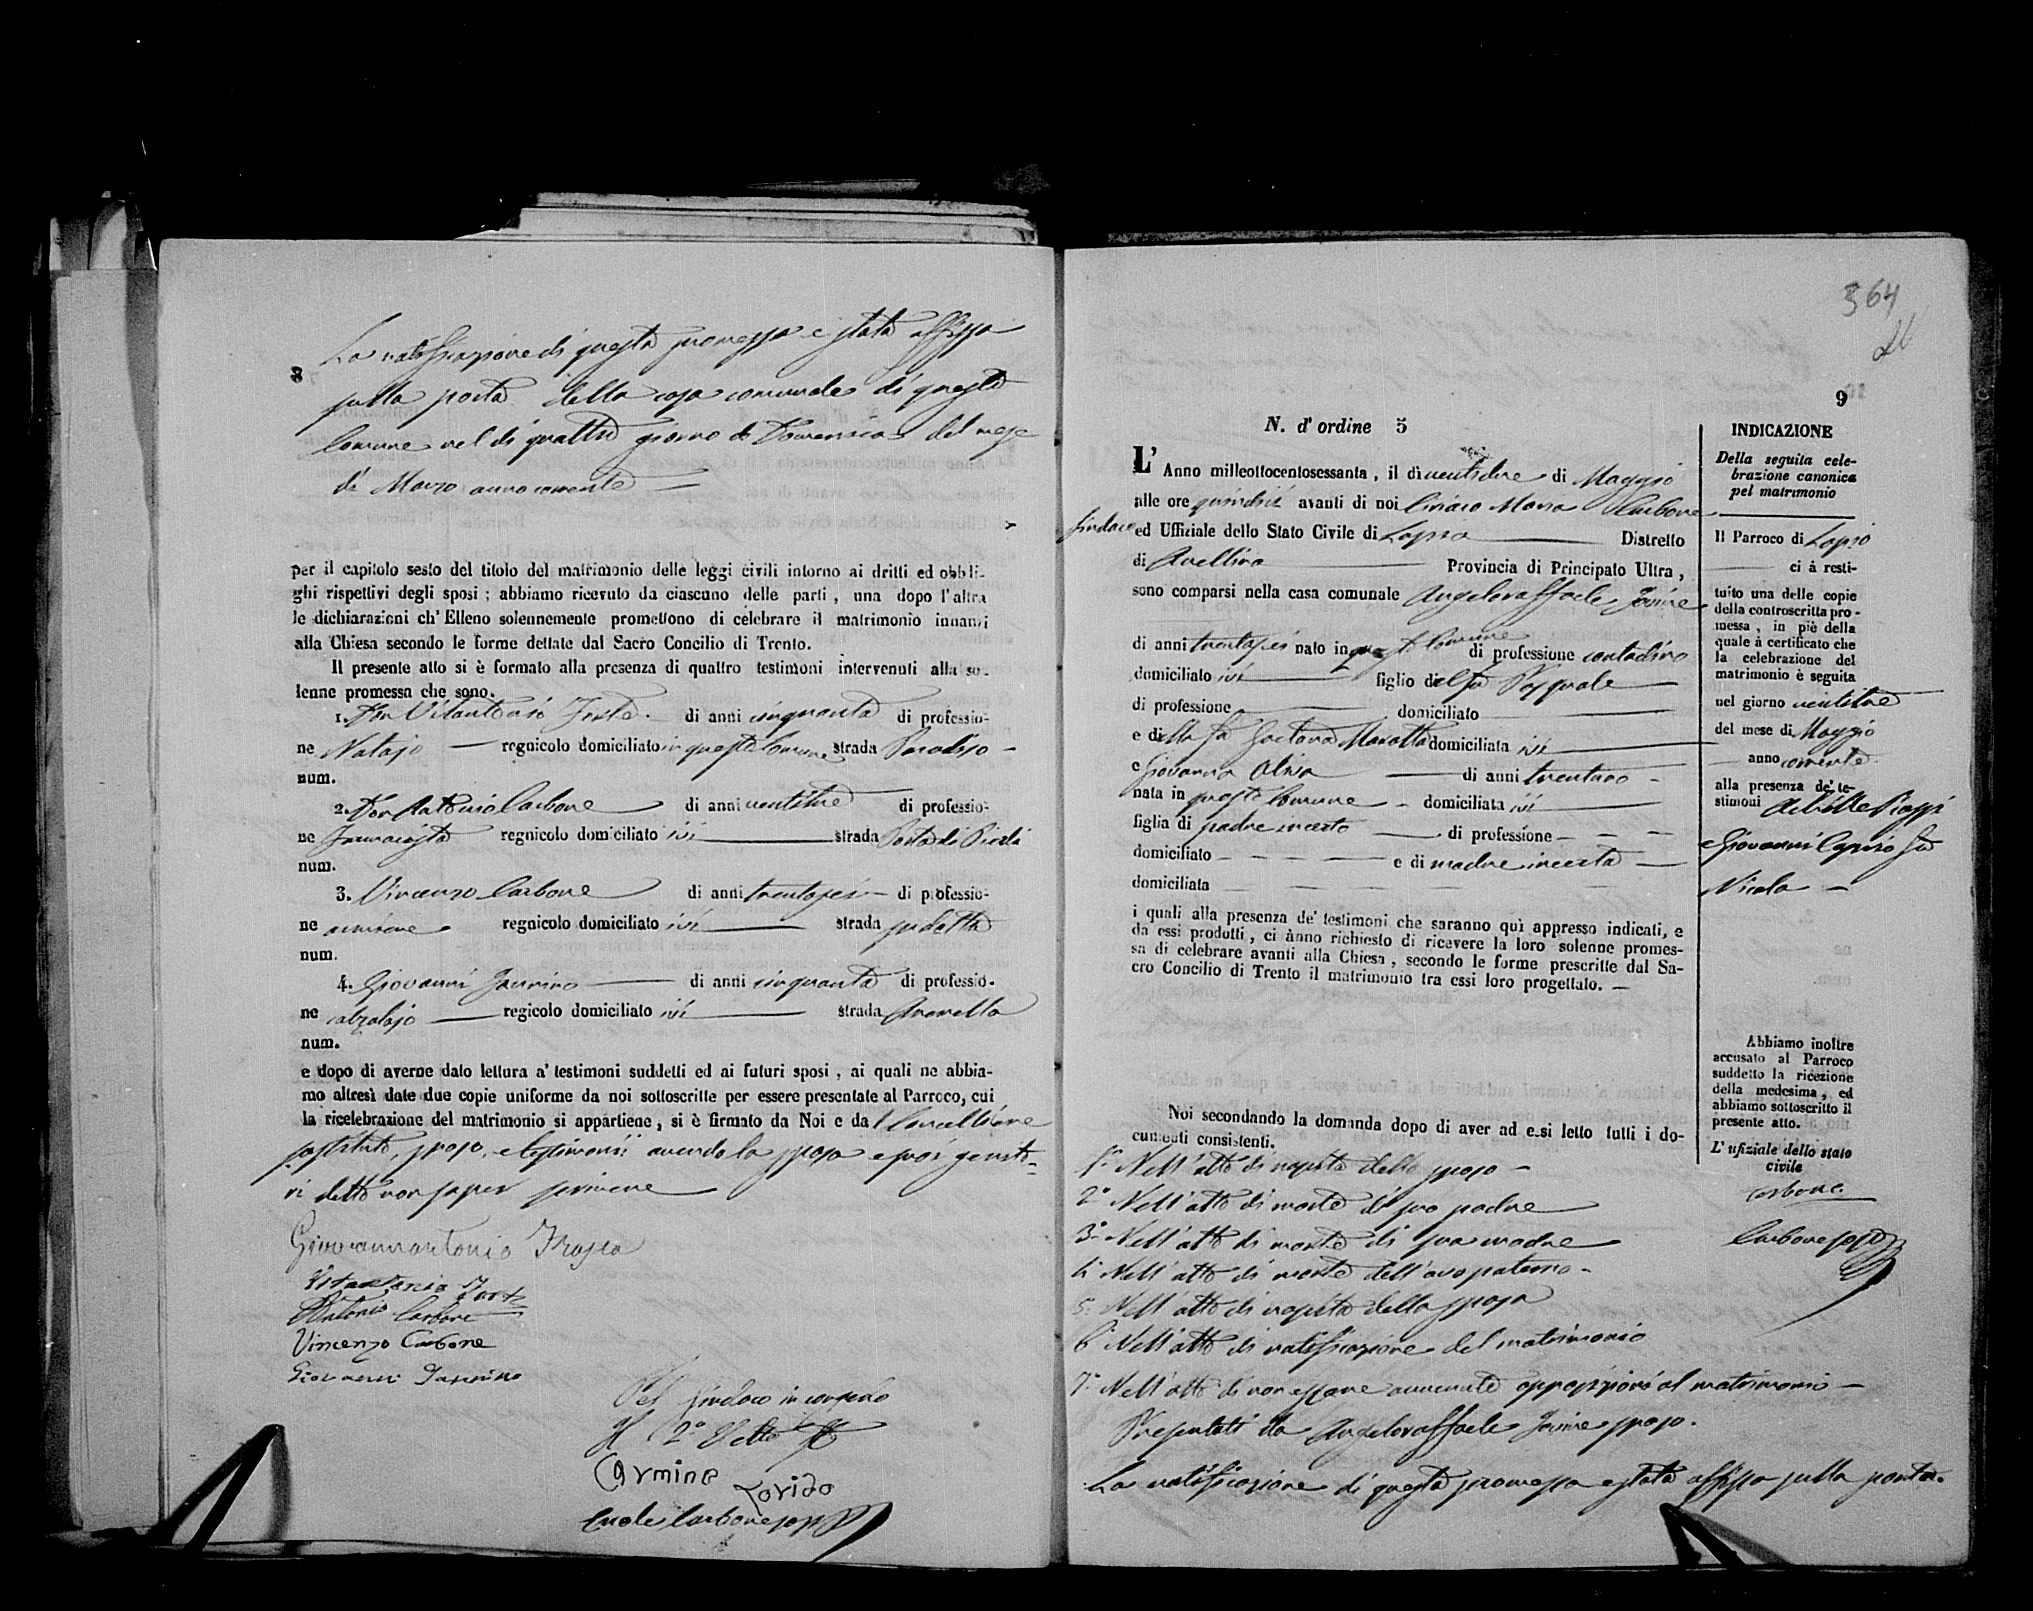 8
La notificazione di questa promessa è stata affissa
sulla porta della casa comunale di questo
Comune nel dì quattro giorno di Domenica del mese
di Marzo anno corrente
per il capitolo sesto del titolo del matrimonio delle leggi civili intorno ai dritti ed obbli-
ghi rispettivi degli sposi ; abbiamo ricevuto da ciascuno delle parti , una dopo l'altra
le dichiarazioni ch' Elleno solennemente promettono di celebrare il matrimonio innanzi
alla Chiesa secondo le forme dettate dal Sacro Concilio di Trento.
Il presente atto si è formato alla presenza di quattro testimoni intervenuti alla so-
lenne promessa che sono.
1. Don Vitantonio Forte di anni cinquanta di professio-
ne Notajo regnicolo domiciliato in questo Comune strada Paradiso
num.
2. Don Antonio Carbone di anni ventitre di professio-
ne Farmacista regnicolo domiciliato ivi strada Porta di
num.
3. Vincenzo Carbone di anni trentasei di professio-
ne regnicolo domiciliato ivi strada sudetta
num.
4. Giovanni Jannino di anni cinquanta di professio-
ne calzolajo regicolo domiciliato ivi strada
num.
e dopo di averne dato lettura a' testimoni suddetti ed ai futuri sposi , ai quali ne abbia-
mo altresì date due copie uniforme da noi sottoscritte per essere presentate al Parroco, cui
la ricelebrazione del matrimonio si appartiene, si è firmato da Noi e dal Cancelliere
sostituto, sposo, e testimonii avendo la sposa e suoi genito-
ri detto non saper scrivere
Giovannantonio
Vitantonio Forte
Antonio Carbone
Vincenzo Carbone
Giovanni Jannino
Pel Sindaco in congedo
Il 2° Eletto
Carmine
Carbone
364
9
N. d' ordine 5
L' Anno milleottocentosessanta , il dì ventidue di Maggio
alle ore quindici avanti di noi Ciriaco Maria Carbone
Sindaco ed Uffiziale dello Stato Civile di Lapio Distretto
di Avellino Provincia di Principato Ultra ,
sono comparsi nella casa comunale Angeloraffaele
di anni trentasei nato in questo Comune di professione contadino
domiciliato ivi figlio del fu Pasquale
di professione domiciliato
e di della fu Gaetana domiciliata ivi
e Giovanna Oliva di anni trentuno
nata in questo Comune domiciliata ivi
figlia di padre incerto di professione
domiciliato e di madre incerta
domiciliata
i quali alla presenza de' testimoni che saranno quì appresso indicati, e
da essi prodotti , ci ànno richiesto di ricevere la loro solenne promes-
sa di celebrare avanti alla Chiesa , secondo le forme prescritte dal Sa-
cro Concilio di Trento il matrimonio tra essi loro progettato.
Noi secondando la domanda dopo di aver ad essi letto tutti i do-
cumenti consistenti.
1° Nell'atto di nascita dello sposo
2° Nell'atto di morte di suo padre
3° Nell'atto di morte di sua madre
4° Nell'atto di morte dell'avo paterno
5° Nell'atto di nascita della sposa
6° Nell'atto di notificazione del matrimonio
7° Nell'atto di non essere avvenute opposizioni al matrimonio
Presentati da Angeloraffaele sposo.
La notificazione di questa promessa è stata affissa sulla porta
INDICAZIONE
Della seguita cele-
brazione canonica
pel matrimonio
Il Parroco di Lapio
ci à resti-
tuito una delle copie
della controscritta pro-
messa , in piè della
quale à certificato che
la celebrazione del
matrimonio è seguita
nel giorno ventitre
del mese di Maggio
anno corrente
alla presenza de' te-
stimoni Achille
e Giovanni fu
Nicola
Abbiamo inoltre
accusato al Parroco
suddetto la ricezione
della medesima , ed
abbiamo sottoscritto il
presente atto.
L' ufiziale dello stato
civile
Carbone
Carbone